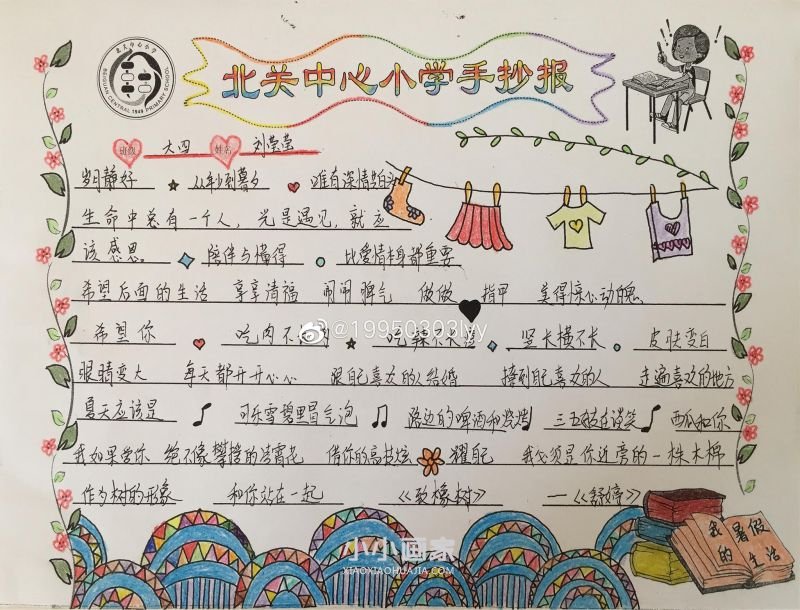 北关中心小学
BEIGUAN CENTRAL 1949 PRIMARY SCHOOL
北关中心小学手抄报
班级 大四 姓名 刘莹莹
岁月静好 从年少到暮夕 唯有深情共白头
生命中总有一个人，光是遇见，就应
该感恩 陪伴与懂得 比爱情本身都重要
希望后面的生活 享享清福 闹闹脾气 做做 指甲 美得惊心动魄
希望你 吃肉不 吃辣不长 竖长横不长 皮肤变白
@19950303lyy
眼睛变大 每天都开开心心 跟自己喜欢的人结婚 撞到自己喜欢的人 走遍喜欢的地方
夏天应该是 可乐雪碧里冒气泡 路边的啤酒和烧烤 三五好友在谈笑 西瓜和你
我如果爱你 绝不像攀援的凌霄花 借你的高枝炫 耀自己 我必须是你近旁的一株木棉
作为树的形象 和你站在一起 《致橡树》 —《舒婷》
我暑假
的生活
小小画家
XIAOXIAOHUAJIA.COM